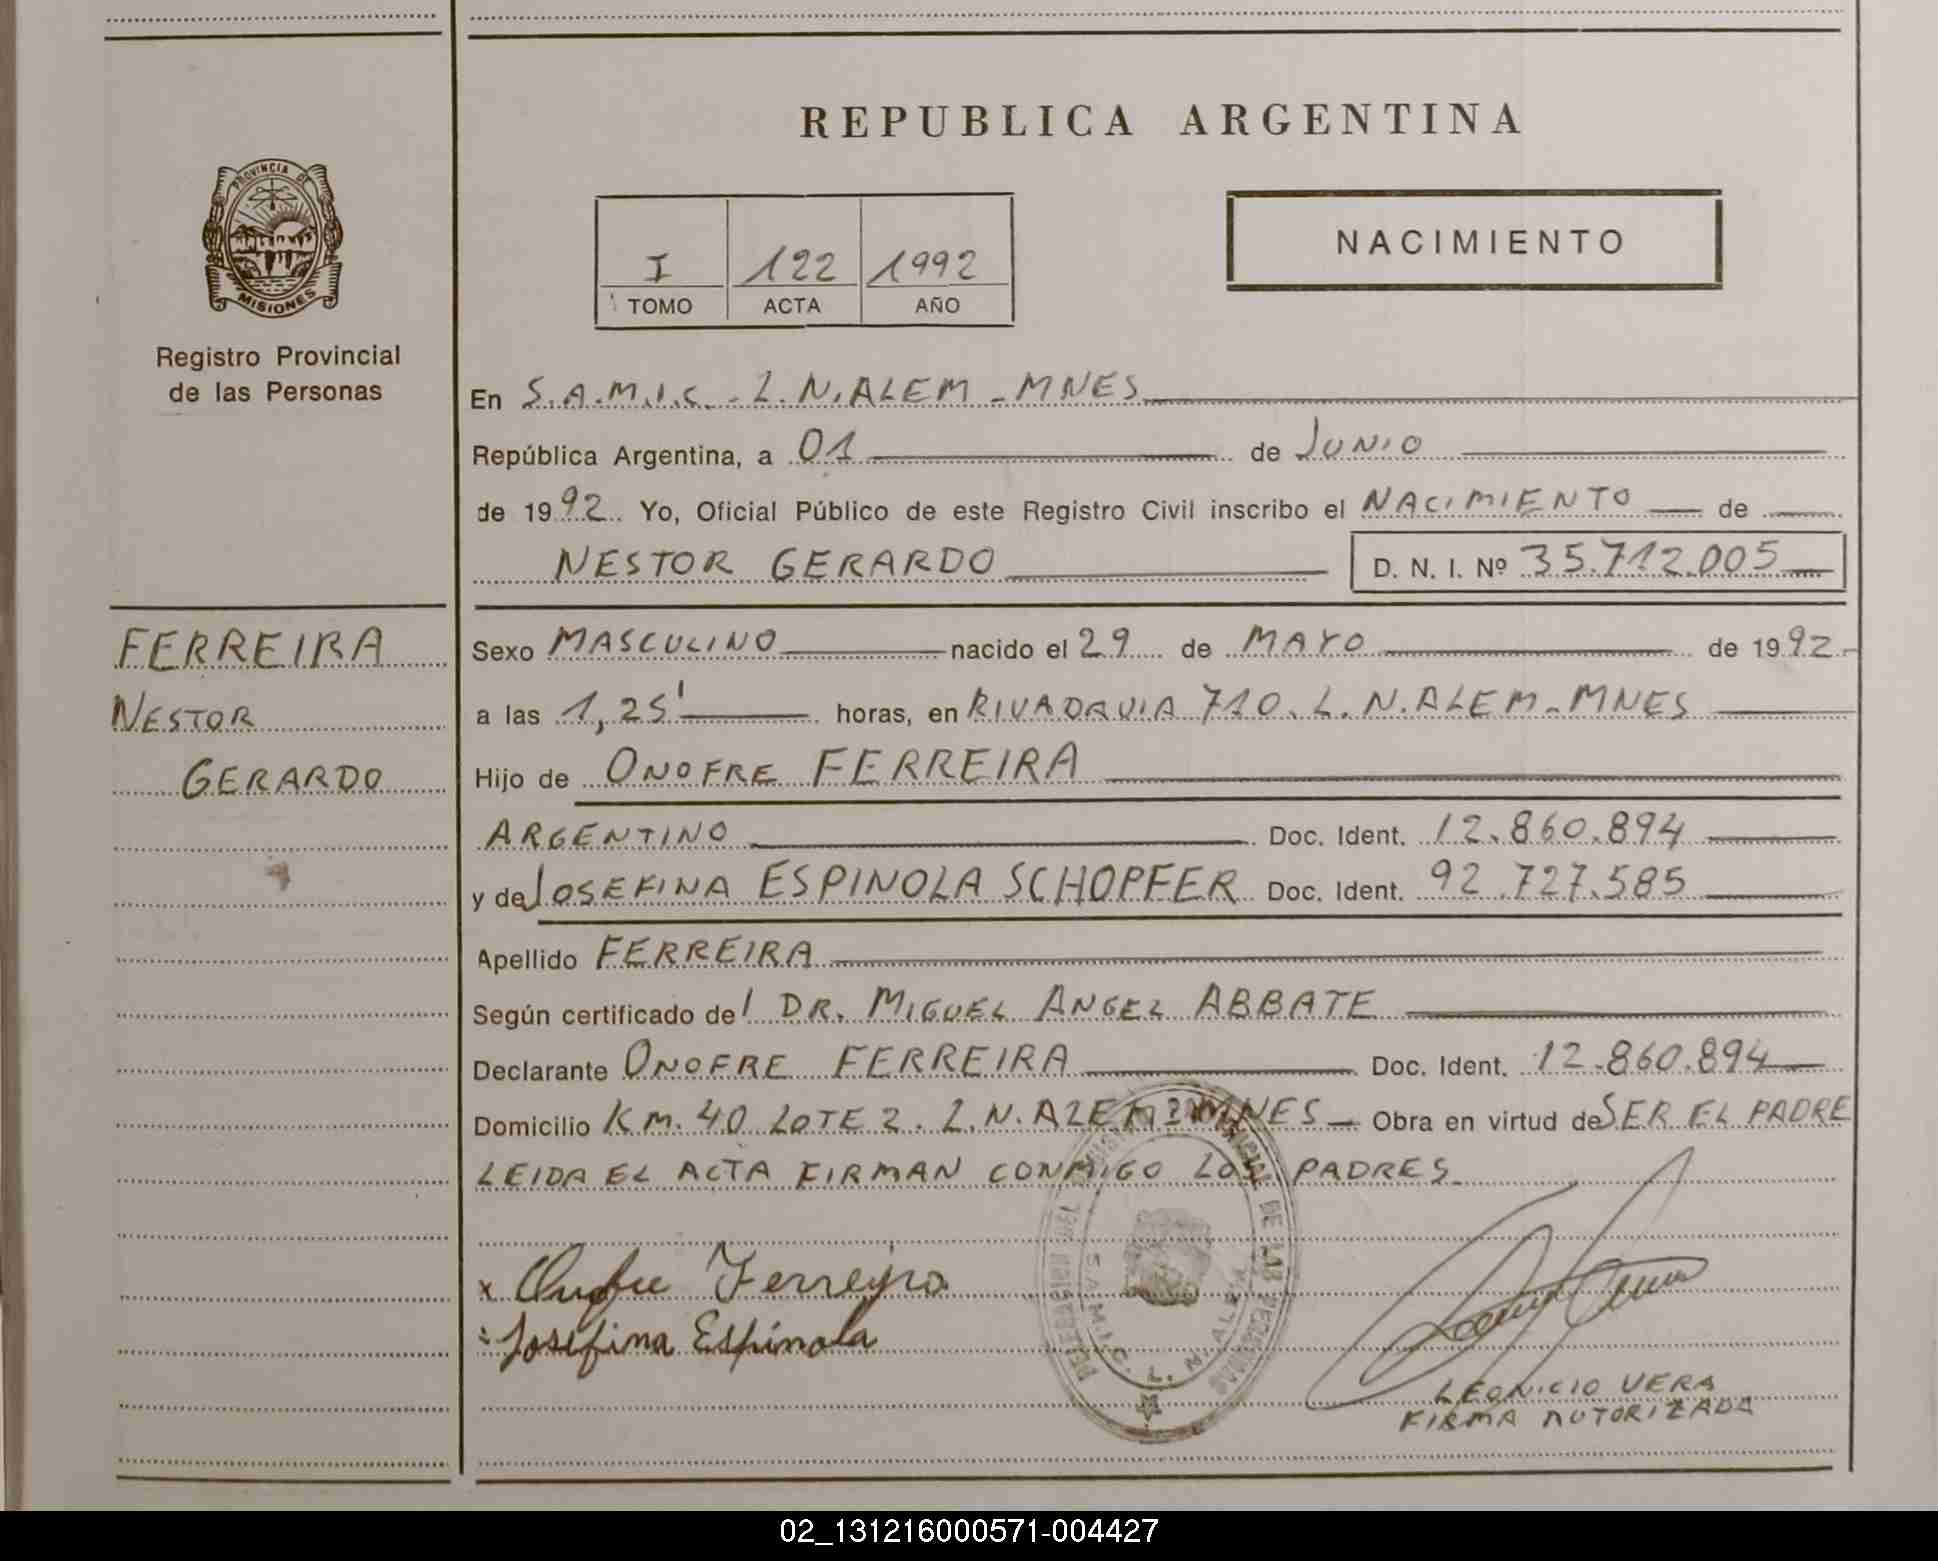 REPUBLICA ARGENTINA
PROVINCIA DE
MISIONES
Registro Provincial
de las Personas
I 122 1992
TOMO ACTA AÑO
NACIMIENTO
En S.A.M.I.C. - L.N.ALEM - MNES
República Argentina, a 01 de JUNIO
de 1992. Yo, Oficial Público de este Registro Civil inscribo el NACIMIENTO de
NESTOR GERARDO D. N. I. Nº 35.712.005
FERREIRA
NESTOR
GERARDO
Sexo MASCULINO nacido el 29 de MAYO de 1992
a las 1,25' horas, en RIVADAVIA 710. L.N.ALEM-MNES
Hijo de ONOFRE FERREIRA
ARGENTINO Doc. Ident. 12.860.894
y de JOSEFINA ESPINOLA SCHOPFER Doc. Ident. 92.727.585
Apellido FERREIRA
Según certificado del DR. MIGUEL ANGEL ABBATE
Declarante ONOFRE FERREIRA Doc. Ident. 12.860.894
Domicilio KM. 40 LOTE 2. L.N.ALEM MNES Obra en virtud de SER EL PADRE
LEIDA EL ACTA FIRMAN CONMIGO LOS PADRES.
x Onofre Ferreyra
Josefina Espínola
DELEGACION DEL REGISTRO PROVINCIAL DE LAS PERSONAS
S.A.M.I.C. L. N. ALEM
LEONICIO VERA
FIRMA AUTORIZADA
02_131216000571-004427